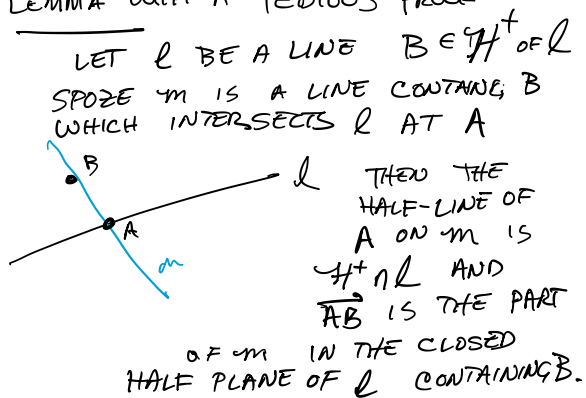 LEMMA WITH A TEDIOUS PROOF
LET l BE A LINE B ∈ H⁺ OF l
SPOZE m IS A LINE CONTANG B
WHICH INTERSECTS l AT A
B
l
A
m
THEN THE
HALF-LINE OF
A ON m IS
H⁺ ∩ l AND
AB IS THE PART
OF m IN THE CLOSED
HALF PLANE OF l CONTAINING B.